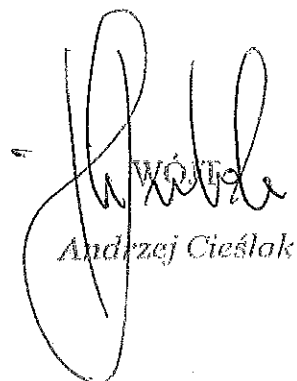 WÓJT
Andrzej Cieślak